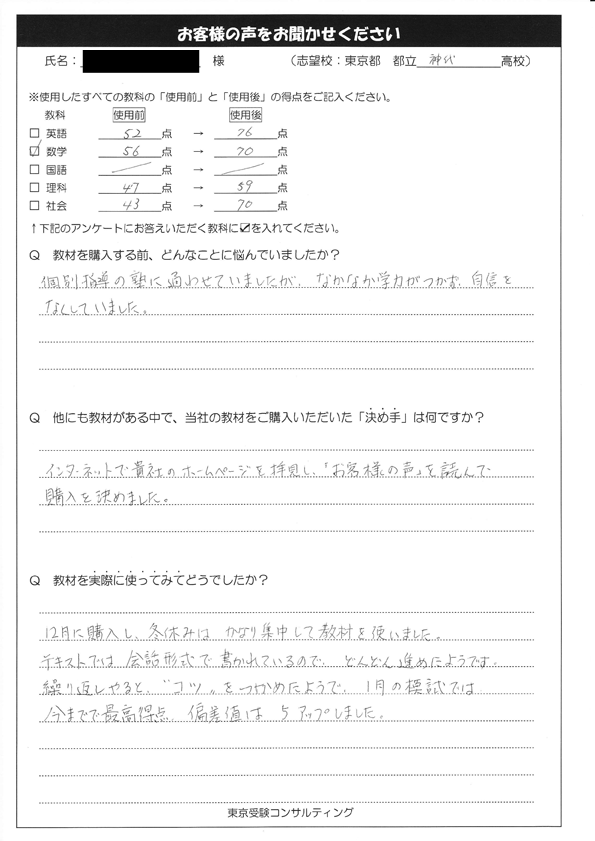 お客様の声をお聞かせください
氏名： 様 （志望校：東京都 都立 神代 高校）
※使用したすべての教科の「使用前」と「使用後」の得点をご記入ください。
教科 使用前 使用後
□ 英語 52 点 → 76 点
☑ 数学 56 点 → 70 点
□ 国語 ／ 点 → ／ 点
□ 理科 47 点 → 59 点
□ 社会 43 点 → 70 点
↑下記のアンケートにお答えいただく教科に☑を入れてください。
Q 教材を購入する前、どんなことに悩んでいましたか？
個別指導の塾に通わせていましたが、なかなか学力がつかず、自信を
なくしていました。
Q 他にも教材がある中で、当社の教材をご購入いただいた「決め手」は何ですか？
インターネットで貴社のホームページを拝見し、「お客様の声」を読んで
購入を決めました。
Q 教材を実際に使ってみてどうでしたか？
12月に購入し、冬休みは かなり集中して教材を使いました。
テキストでは 会話形式で書かれているので、どんどん進めたようです。
繰り返しやると、"コツ"をつかめたようで、1月の模試では
今までで最高得点、偏差値は 5アップしました。
東京受験コンサルティング